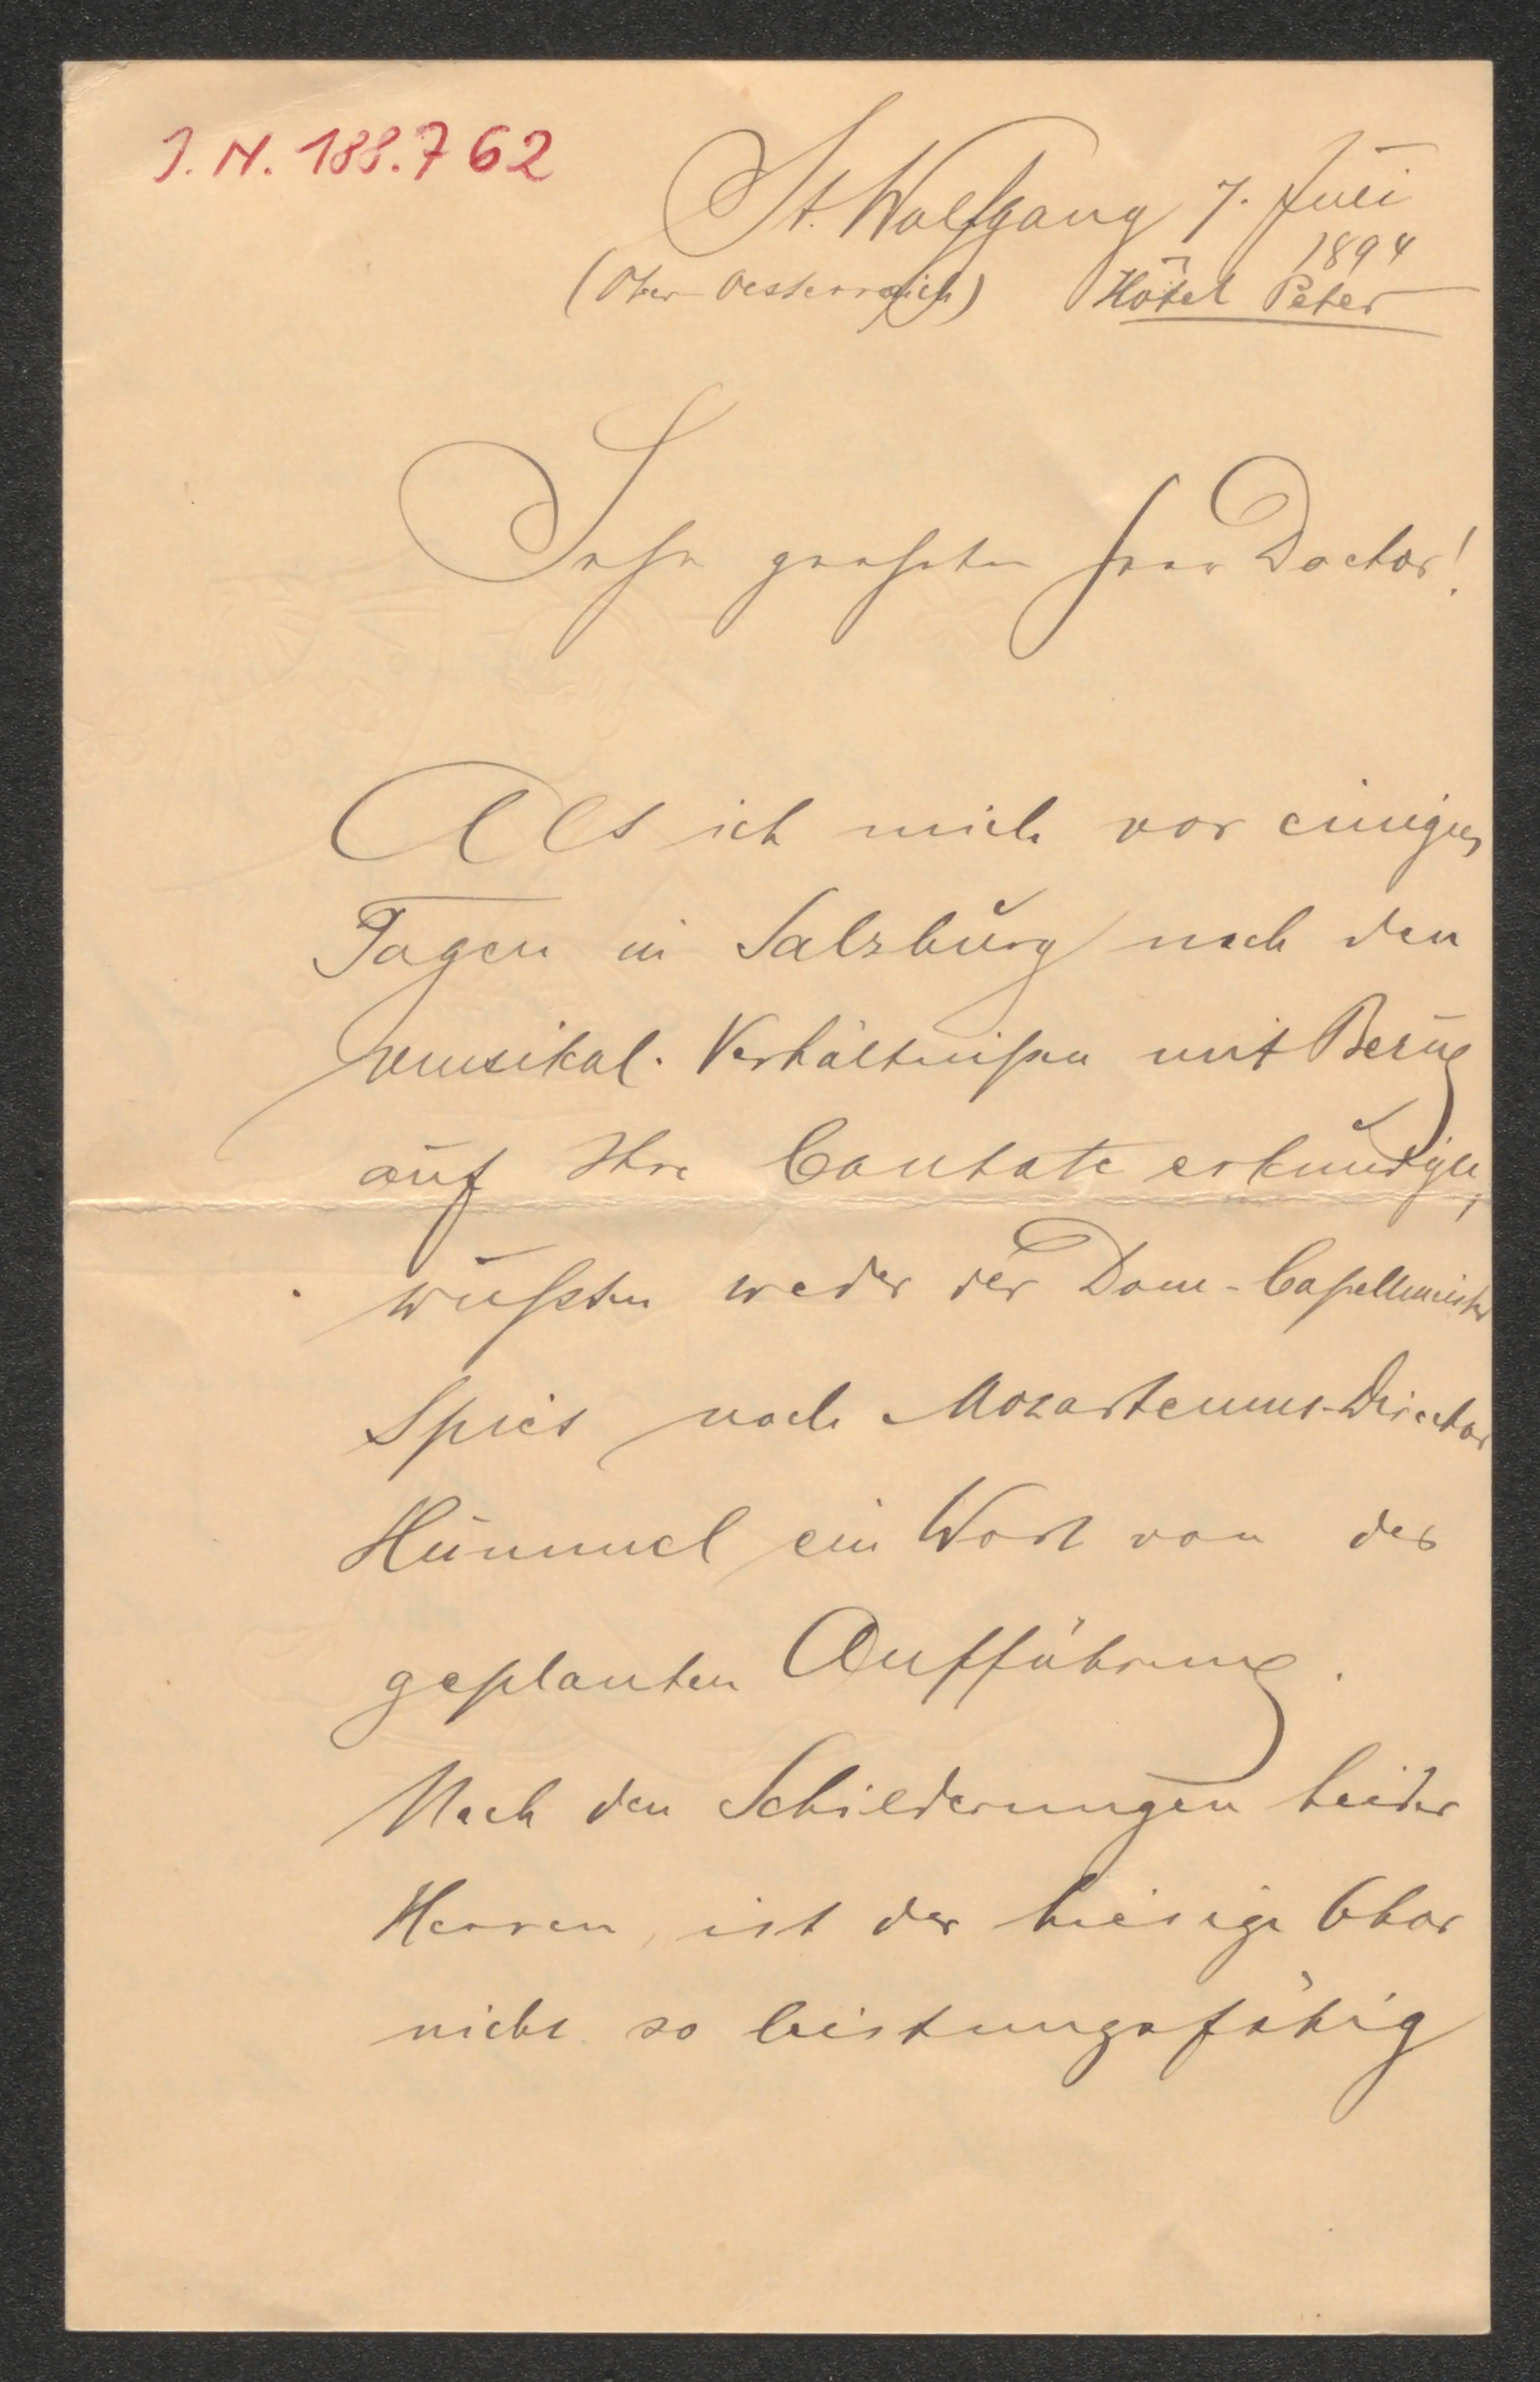 J. N. 188.762
St. Wolfgang 7. Juli
1894
(Ober-Oesterreich) Hôtel Peter
Sehr geehrter Herr Doctor!
Als ich mich vor einigen
Tagen in Salzburg nach den
musikal. Verhältnißen mit Bezug
auf Ihre Cantate erkundigte,
wußten weder der Dom-Capellmeister
Spies noch Mozarteums-Director
Hummel ein Wort von der
geplanten Aufführung.
Nach den Schilderungen beider
Herren, ist der hiesige Chor
nicht so leistungsfähig